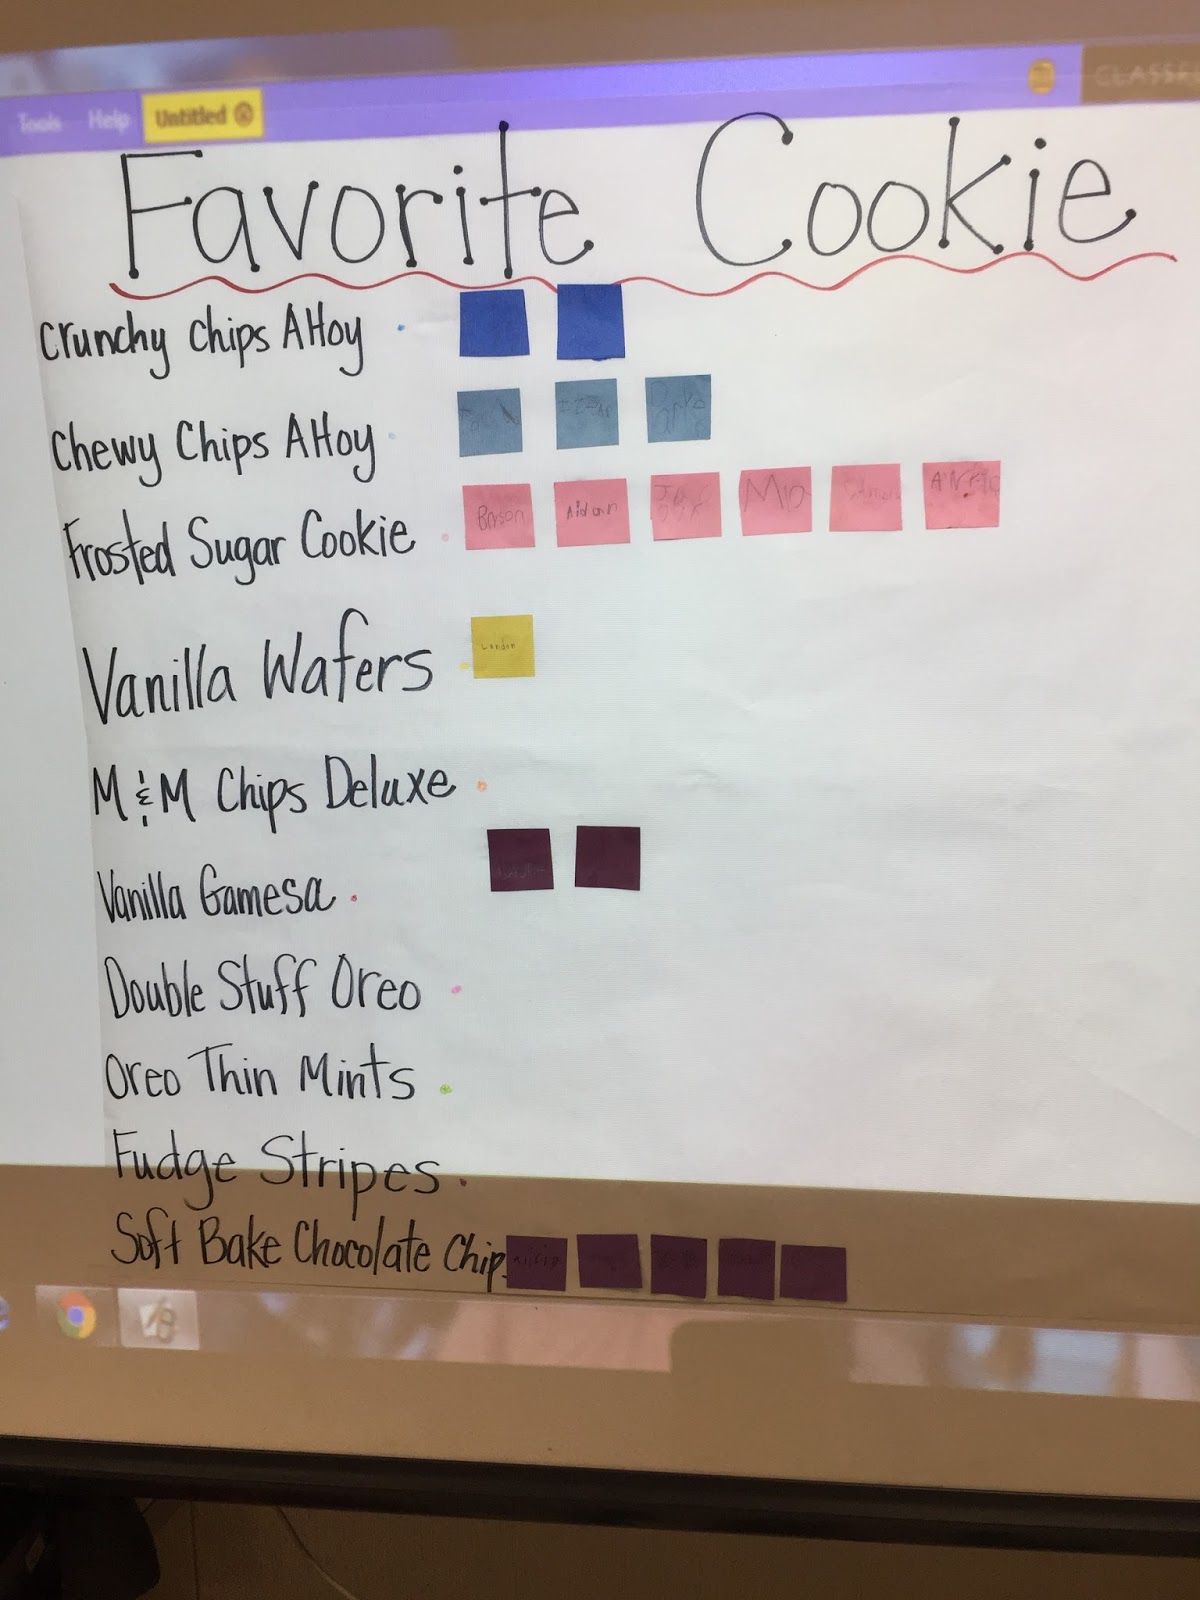 Tools Help Untitled
Favorite Cookie
Crunchy Chips AHoy
Chewy Chips AHoy
Frosted Sugar Cookie
Aidan
Vanilla Wafers
Landon
M & M Chips Deluxe
Vanilla Gamesa
Double Stuff Oreo
Oreo Thin Mints
Fudge Stripes
Soft Bake Chocolate Chip